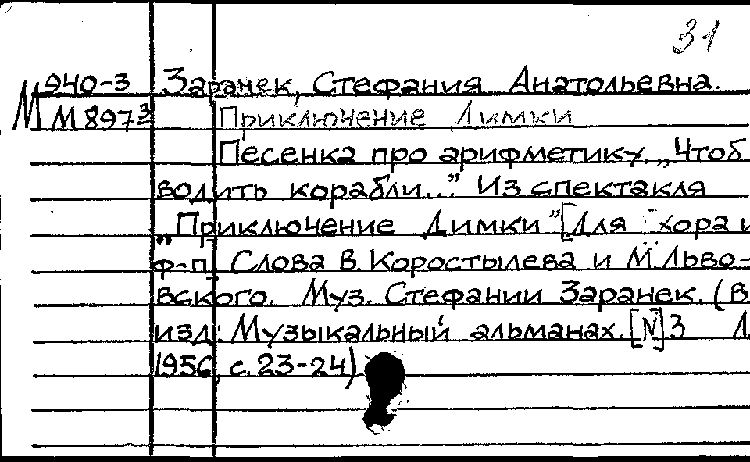 31
М 940-3 Заранек, Стефания Анатольевна.
М 897 3 Приключение Димки
Песенка про арифметику. „Чтоб
водить корабли..." Из спектакля
„Приключение Димки" [Для хора и
ф-п] Слова В. Коростылева и М. Льво-
вского. Муз. Стефании Заранек. (В
изд: Музыкальный альманах. [N] 3 Л
1956, с. 23-24)